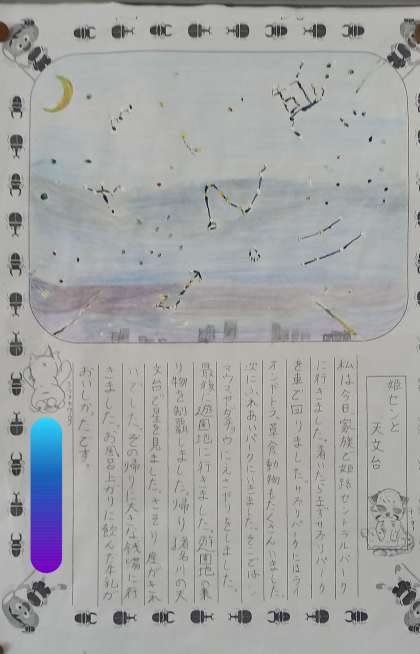 姫センと
天文台
私は今日、家族で姫路セントラルパーク
に行きました。着いたらまずサファリパーク
を車で回りました。サファリパークにはライ
オンやトラ、草食動物もたくさんいました。
次にふれあいパークにいきました。そこでは、
マウスやダチョウにえさやりをしました。
最後に遊園地に行きました。遊園地の乗
り物を制覇しました。帰り猪名川の天
文台で星を見ました。さそり座がきれ
いでした。その帰りに大きな銭湯に行
きました。お風呂上がりに飲んだ牛乳が
おいしかったです。